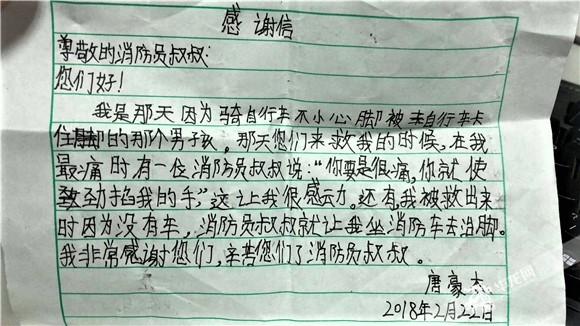 感谢信
尊敬的消防员叔叔:
您们好!
我是那天因为骑自行车不小心脚被自行车卡
住脚的那个男孩。那天您们来救我的时候,在我
最痛时有一位消防员叔叔说:“你要是很痛,你就使
劲掐我的手,”这让我很感动。还有我被救出来
时因为没有车,消防员叔叔就让我坐消防车去治脚。
我非常感谢您们,辛苦您们了消防员叔叔。
唐豪
2018年2月22日